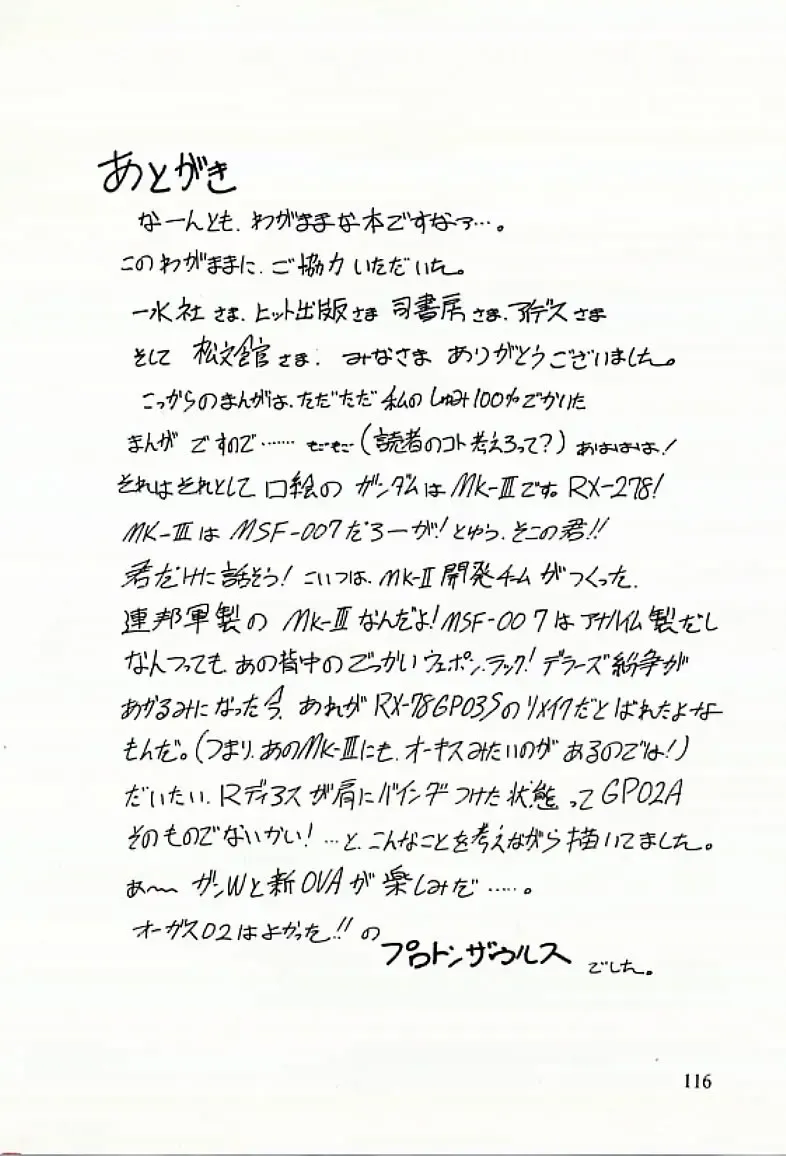 あとがき
なーんとも、わがままな本ですなァ…。
このわがままに、ご協力いただいた。
一水社さま、ヒット出版さま 司書房さま、アイデスさま
そして 松文館さま、みなさま ありがとうございました。
こっからのまんがは、ただただ 私のしゅみ100%でかいた
まんが ですので…… もごもご(読者のコト考えろって?)あははは!
それはそれとして 口絵の ガンダムは MK-Ⅲです。RX-278!
MK-Ⅲは MSF-007だろーが!とゆう、そこの君!!
君だけに話そう!こいつは、MK-Ⅱ開発チームがつくった、
連邦軍製の MK-Ⅲなんだよ!MSF-007は アナハイム製だし
なんつっても、あの背中のでっかいウェポン・ラック!デラーズ紛争が
あかるみになった今、あれがRX-78GP03Sのリメイクだとばれたよーな
もんだ。(つまり、あのMK-Ⅲにも、オーキスみたいのがあるのでは!)
だいたい、Rディアスが肩にバインダーつけた状態ってGP02A
そのものでないかい!…と、こんなことを考えながら描いてました。
あ〜 ガンWと新OVAが楽しみだ……。
オーガス02はよかった!!の
プロトンザウルス でした。
116